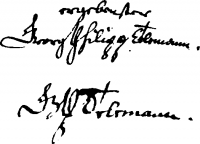 ergebenster
Georg Philipp Telemann.
Telemann.